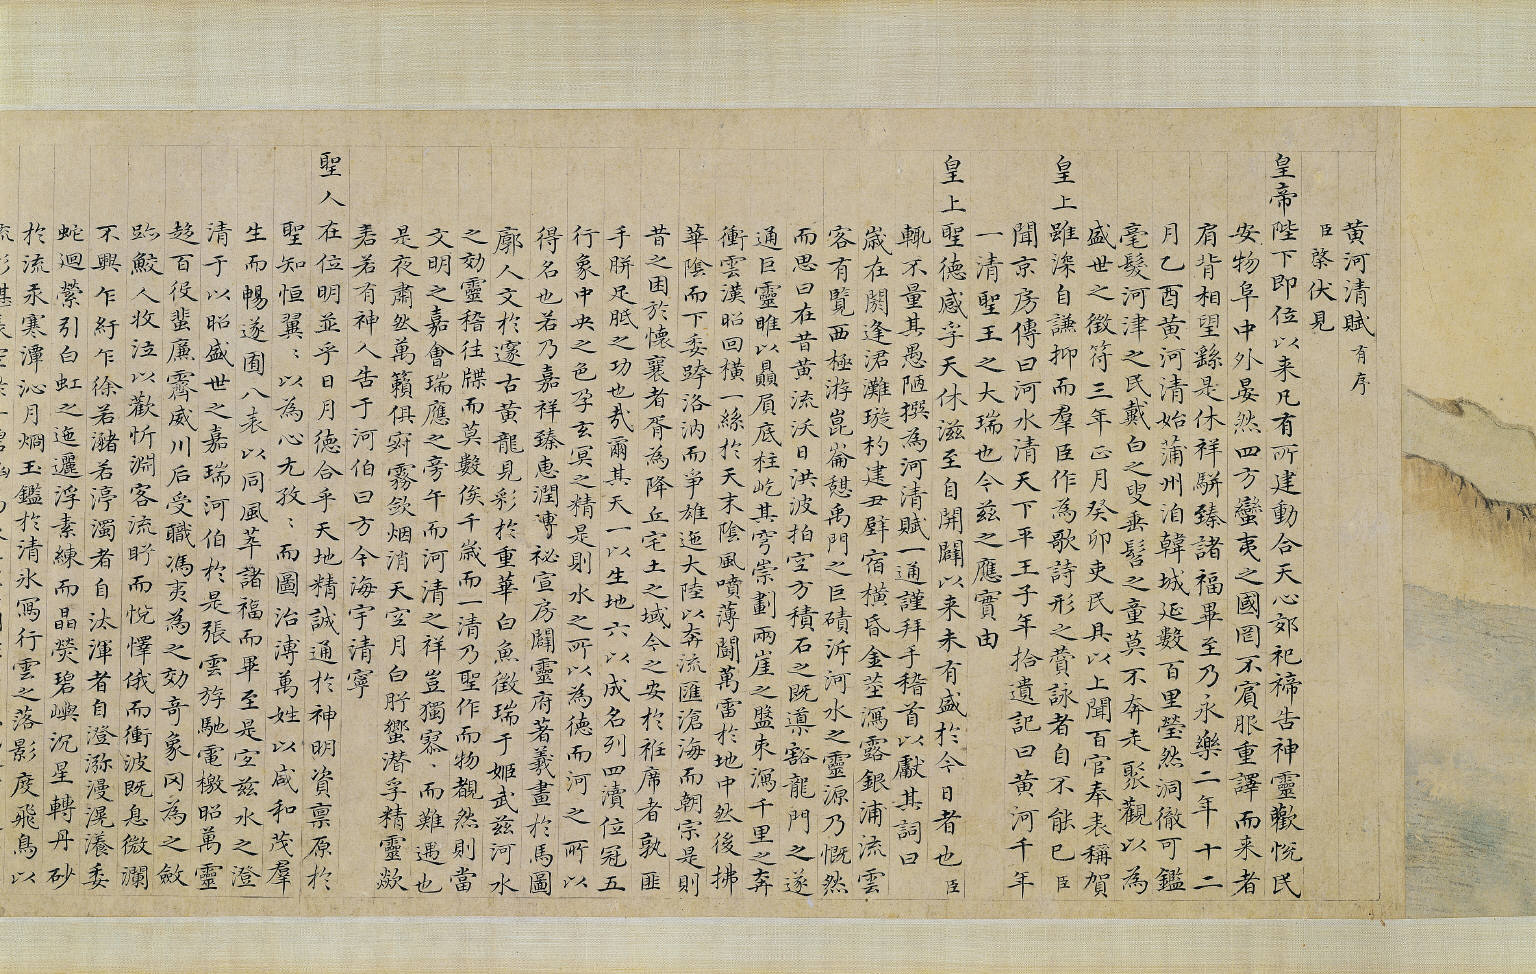 黄河清賦有序
臣棨伏見
皇帝陛下即位以来凡有所建動合天心郊祀禘告神靈歡悅民
安物阜中外晏然四方蠻夷之國罔不賓服重譯而来者
肩背相望繇是休祥駢臻諸福畢至乃永樂二年十二
月乙酉黄河清始蒲州洎韓城延數百里瑩然洞徹可鑑
毫髮河津之民戴白之叟垂髫之童莫不奔走聚觀以為
盛世之徵符三年正月癸卯吏民具以上聞百官奉表稱賀
皇上雖深自謙抑而羣臣作為歌詩形之賛詠者自不能已臣
聞京房傳曰河水清天下平王子年拾遺記曰黄河千年
一清聖王之大瑞也今茲之應實由
皇上聖德感孚天休滋至自開闢以来未有盛於今日者也臣
輒不量其愚陋撰為河清賦一通謹拜手稽首以獻其詞曰
歲在閼逢涒灘璇杓建丑壁宿橫昏金莖瀉露銀浦流雲
客有覽西極游崑崙憇禹門之巨磧泝河水之靈源乃慨然
而思曰在昔黄流沃日洪波拍空方積石之既導豁龍門之遂
通巨靈睢以贔屓底柱屹其穹崇劃兩崖之盤束瀉千里之奔
衝雲漢昭回橫一絲於天末陰風噴薄鬭萬雷於地中然後拂
華陰而下委蹲洛汭而爭雄迤大陸以奔流匯滄海而朝宗是則
昔之困於懷襄者胥為降丘宅土之域今之安於袵席者孰匪
手胼足胝之功也㢤爾其天一以生地六以成名列四瀆位冠五
行象中央之色孕玄冥之精是則水之所以為德而河之所以
得名也若乃嘉祥臻惠潤溥祕宣房闢靈府著羲畫於馬圖
廓人文於邃古黄龍見彩於重華白魚徵瑞于姬武茲河水
之効靈稽往牒而莫數俟千歲而一清乃聖作而物覩然則當
文明之嘉會瑞應之旁午而河清之祥豈獨寡、而難遇也
是夜肅然萬籟俱寂霧斂烟消天空月白肸蠁潜孚精靈歘
砉若有神人告于河伯曰方今海宇清寧
聖人在位明並乎日月德合乎天地精誠通於神明資稟原於
聖知恒翼〻以為心尤孜〻而圖治溥萬姓以咸和茂羣
生而暢遂囿八表以同風萃諸福而畢至是宜茲水之澄
清于以昭盛世之嘉瑞河伯於是張雲旂馳電檄昭萬靈
趍百役蜚廉霽威川后受職馮夷為之効竒象罔為之斂
跡鮫人收泣以歡忻淵客流盱而悅懌俄而衝波既息微瀾
不興乍紆乍徐若瀦若渟濁者自汰渾者自澄㳽漫滉瀁委
蛇迴縈引白虹之迤邐浮素練而晶熒碧嶼沉星轉丹砂
於流汞寒潭沁月烱玉鑑於清氷寫行雲之落影度飛鳥以